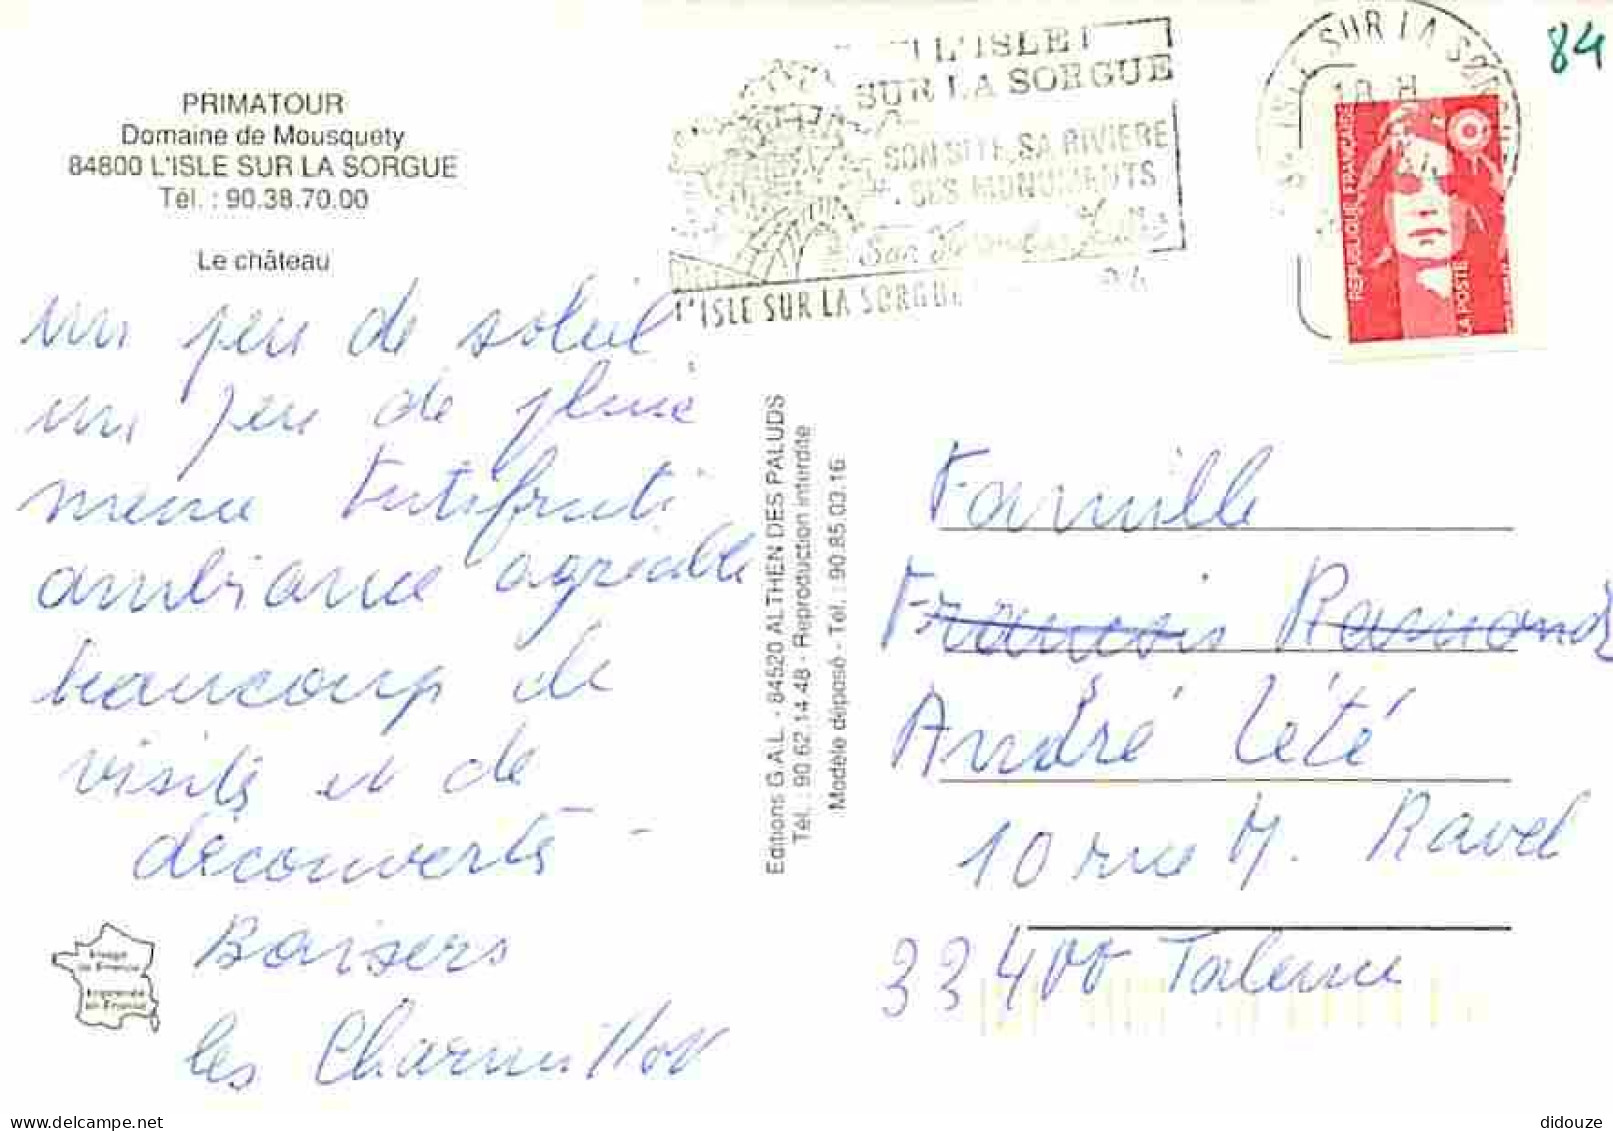 PRIMATOUR
Domaine de Mousquety
84800 L'ISLE SUR LA SORGUE
Tél. : 90.38.70.00
Le château
un peu de soleil
un peu de pluie
menu tutifruti
ambiance agréable
beaucoup de
visites et de
découvertes -
Baisers
les Charmillon
Image
de France
Imprimée
en France
Editions G.A.L. - 84520 ALTHEN DES PALUDS
Tél. : 90.62.14.48 - Reproduction interdite
Modèle déposé - Tél. : 90.85.03.16
L'ISLE
SUR LA SORGUE
SON SITE, SA RIVIERE
SES MONUMENTS
L'ISLE SUR LA SORGUE
ISLE SUR LA SORGUE
18 H
REPUBLIQUE FRANÇAISE
LA POSTE
84
Famille
Francois Ramond
André Lété
10 rue M. Ravel
33400 Talence
didouze
delcampe.net